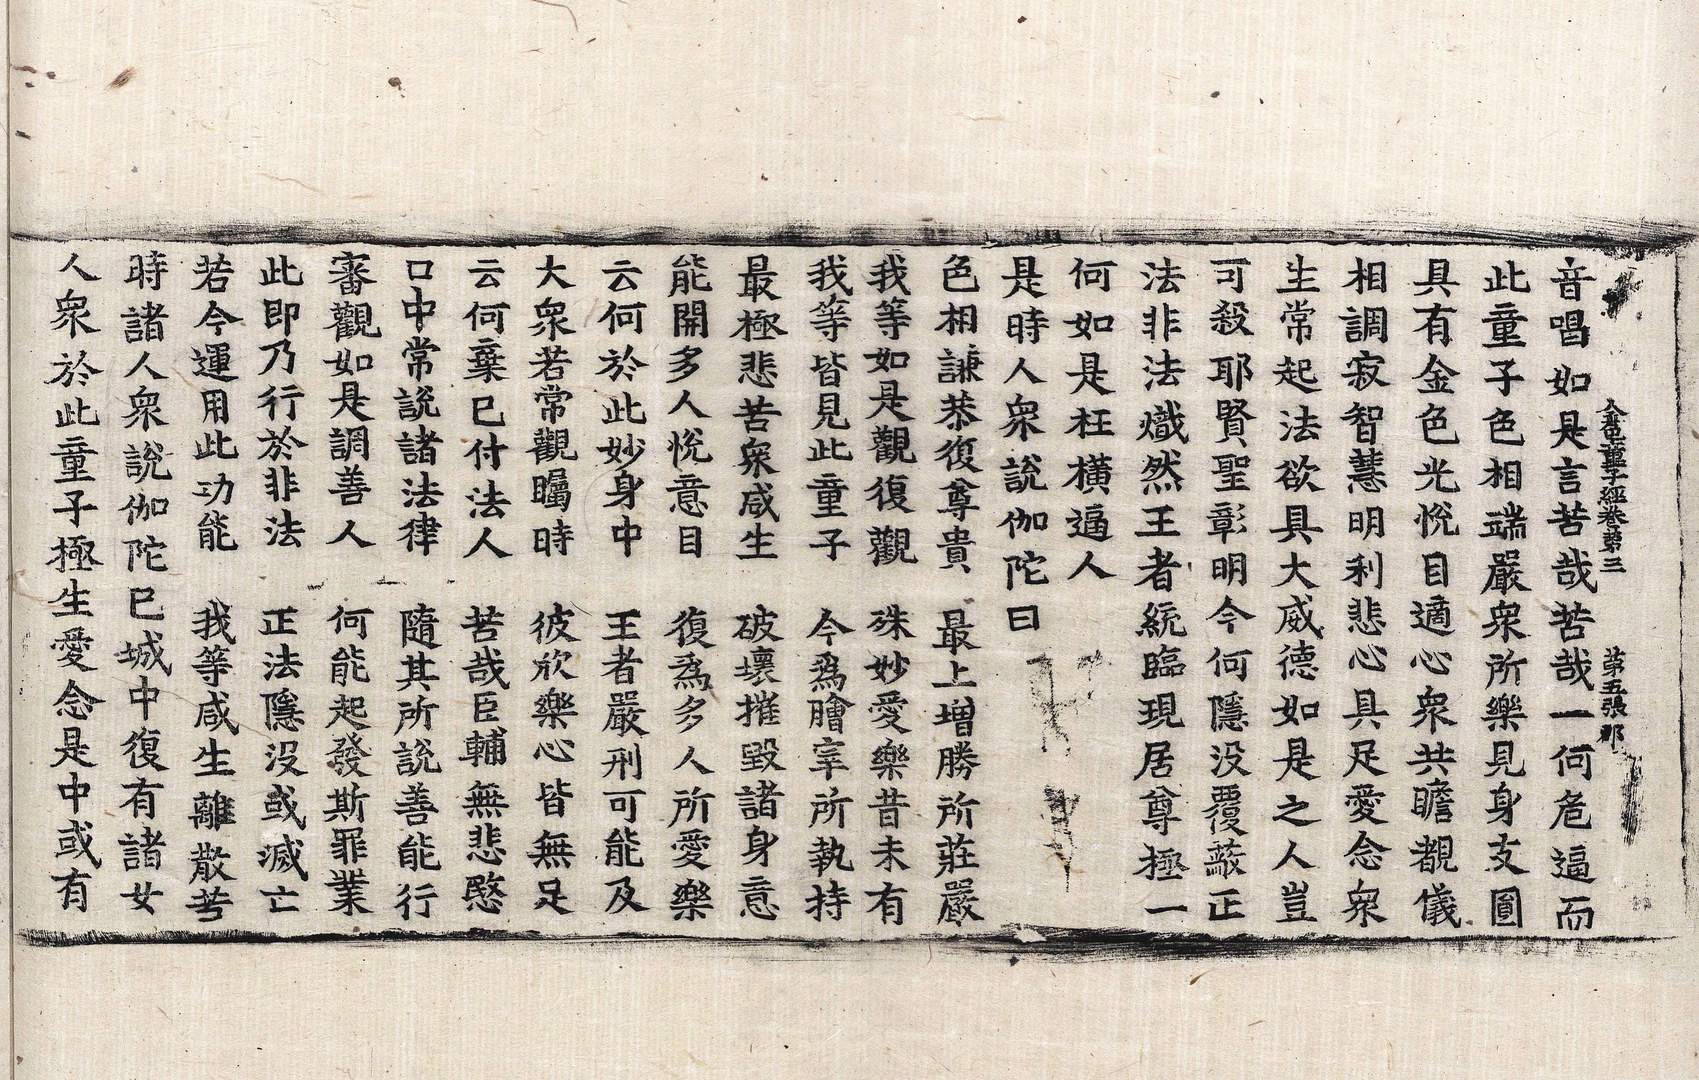 童子經卷第三 第五張 那
音唱如是言苦哉苦哉一何危逼而
此童子色相端嚴衆所樂見身支圓
具有金色光悅目適心衆共瞻覩儀
相調寂智慧明利悲心具足愛念衆
生常起法欲具大威德如是之人豈
可殺耶賢聖彰明今何隱没覆蔽正
法非法熾然王者統臨現居尊極一
何如是枉橫逼人
是時人衆說伽陀曰
色相謙恭復尊貴 最上增勝所莊嚴
我等如是觀復觀 殊妙愛樂昔未有
我等皆見此童子 今爲膾宰所執持
最極悲苦衆咸生 破壞摧毀諸身意
能開多人悅意目 復爲多人所愛樂
云何於此妙身中 王者嚴刑可能及
大衆若常觀矚時 彼欣樂心皆無足
云何棄已付法人 苦哉臣輔無悲愍
口中常說諸法律 隨其所說善能行
審觀如是調善人 何能起發斯罪業
此即乃行於非法 正法隱没或滅亡
若今運用此功能 我等咸生離散苦
時諸人衆說伽陀已城中復有諸女
人衆於此童子極生愛念是中或有